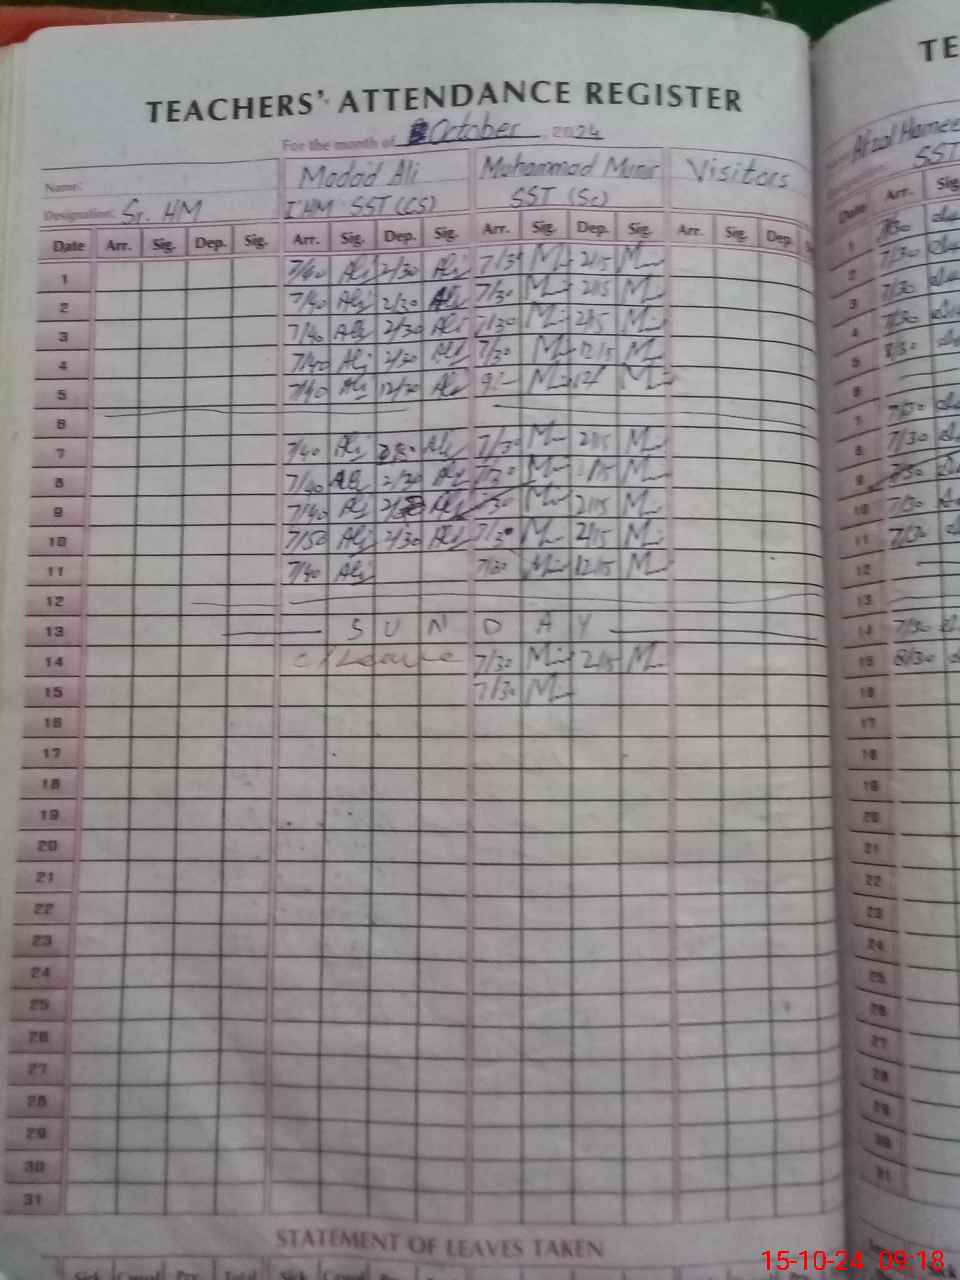 TEACHERS' ATTENDANCE REGISTER
For the month of October 2024
Name: Madad Ali Mohammad Munir Visitors
Designation: Sr. HM I HM SST (CS) SST (Sc)
Date Arr. Sig. Dep. Sig. Arr. Sig. Dep. Sig. Arr. Sig. Dep. Sig. Arr. Sig. Dep.
1 7/40 Ali 2/30 Ali 7/30 M 2/15 M
2 7/40 Ali 2/30 Ali 7/30 M 2/15 M
3 7/40 Ali 2/30 Ali 7/30 M 2/15 M
4 7/40 Ali 2/30 Ali 7/30 M 12/15 M
5 7/40 Ali 12/30 Ali M M
6
7 7/40 Ali Ali 7/30 M 2/15 M
8 7/40 Ali 2/30 Ali 7/30 M M
9 7/40 Ali Ali M 2/15 M
10 7/50 Ali 2/30 Ali 7/30 M 2/15 M
11 7/40 Ali 7/30 M 12/15 M
12
13 S U N D A Y
14 C/Leave 7/30 M 2/15 M
15 7/30 M
16
17
18
19
20
21
22
23
24
25
26
27
28
29
30
31
STATEMENT OF LEAVES TAKEN
TE
Afzal Hamee
SST
Date Arr. Sig
1 7/30
2 7/30
3 7/30
4 7/30
5 8/30
6
7 7/30
8 7/30
9 7/30
10 7/30
11 7/30
12
13
14 7/30
15 8/30
16
17
18
19
20
21
22
23
24
25
26
27
28
29
30
31
15-10-24 09:18